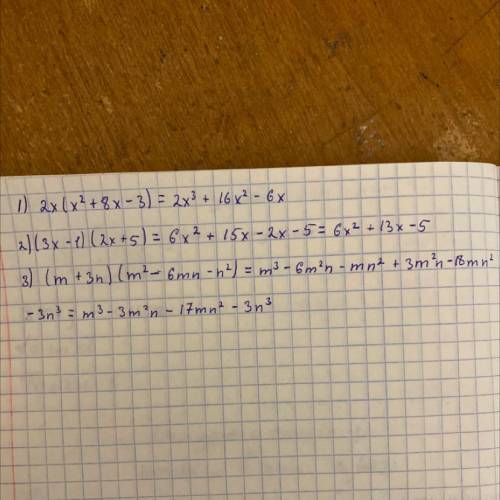 1) 2x(x² + 8x - 3) = 2x³ + 16x² - 6x
2) (3x - 1)(2x + 5) = 6x² + 15x - 2x - 5 = 6x² + 13x - 5
3) (m + 3n)(m² - 6mn - n²) = m³ - 6m²n - mn² + 3m²n - 18mn²
- 3n³ = m³ - 3m²n - 17mn² - 3n³